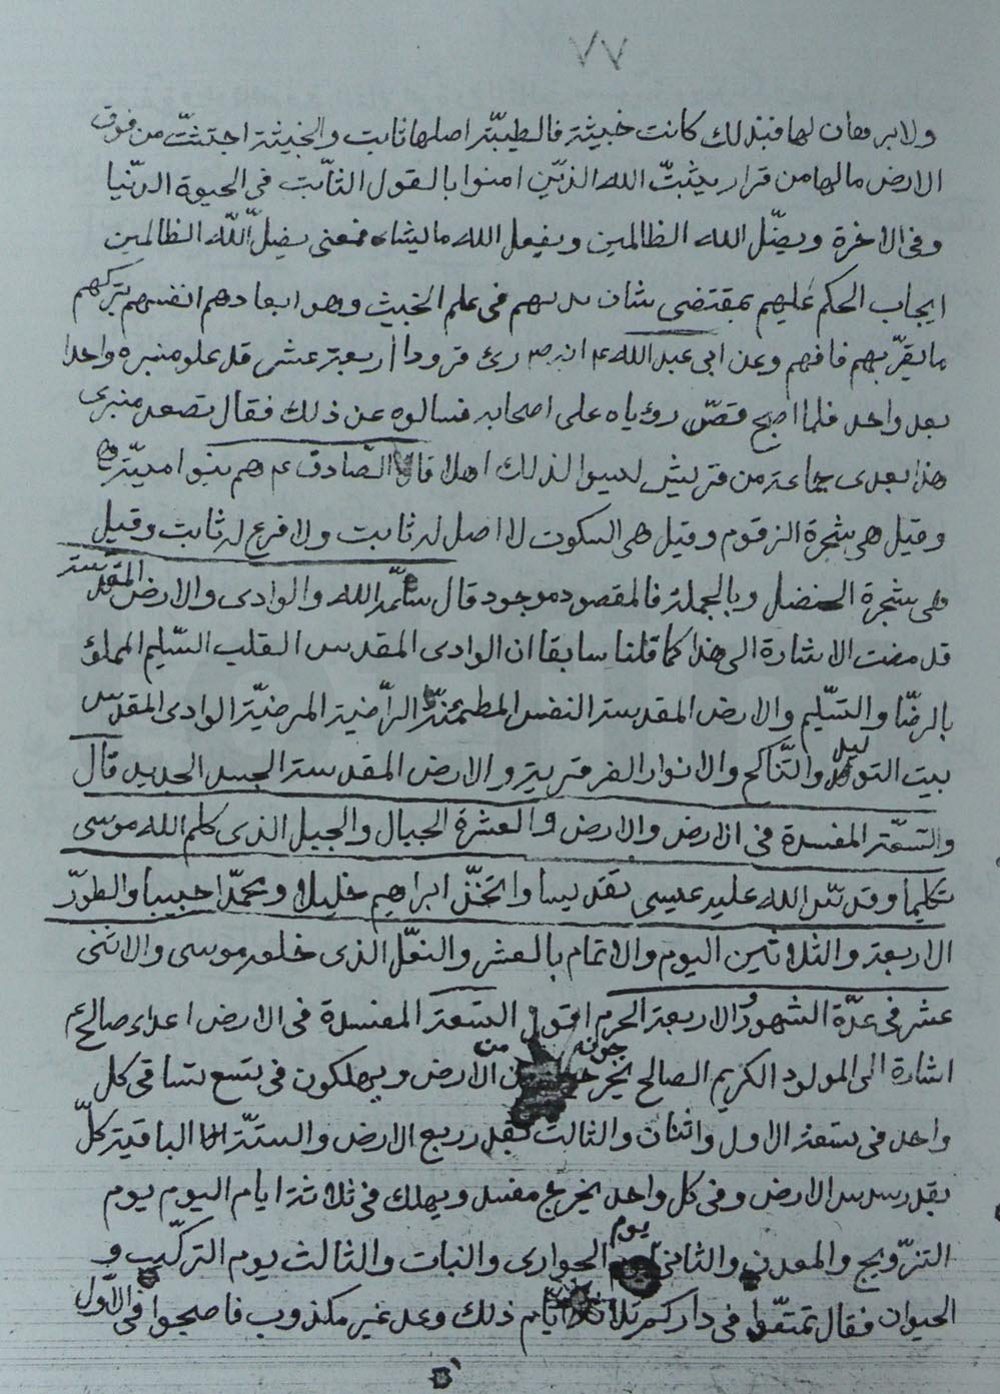 ٧٧
ولا برهان لها فبذلك كانت خبيثة فالطيبة اصلها ثابت والخبيثة اجتثت من فوق
الارض مالها من قرار يثبت الله الذين امنوا بالقول الثابت فى الحيوة الدنيا
وفى الاخرة ويضل الله الظالمين ويفعل الله ما يشاء فمعنى يضل الله الظالمين
ايجاب الحكم عليهم بمقتضى شان فى علم الخبيث وهو ابعادهم انفسهم بتركهم
ما يقربهم فافهم وعن ابى عبد الله ع انه ص رئ قرودا اربعة عشر قد علو منبره واحدا
بعد واحد فلما اصبح قص رؤياه على اصحابه فسالوه عن ذلك فقال تصعد منبرى
هذا بعدى جماعة من قريش ليسوا لذلك اهلا قال الصادق ع هم بنوا امية
وقيل هى شجرة الزقوم وقيل هى السكوت لا اصل له ثابت ولا فرع له ثابت وقيل
هى شجرة الحنضل وبالجملة فالمقصود موجود قال سلمه الله والوادى والارض المقدسة
قد مضت الاشارة الى هذا كما قلنا سابقا ان الوادى المقدس القلب السليم المملؤ
بالرضا والتسليم والارض المقدسة النفس المطمئنة الراضية المرضية الوادى المقدس
بيت التوليد والتناكح والانوار الفرقرية والارض المقدسة الجسد الجديد قال
والتسعة المفسدة فى الارض والارض والعشرة الجبال والجبل الذى كلم الله موسى
تكليما وقدس الله عليه عيسى تقديسا واتخذ ابراهيم خليلا ومحمدا حبيبا والطور
الاربعة والثلاثين اليوم والاتمام بالعشر والنعل الذى خلعه موسى والاثنى
عشر فى عدة الشهور والاربعة الحرم اقول التسعة المفسدة فى الارض اعداء صالح ع
اشارة الى المولود الكريم الصالح من الارض ويهلكون فى تسع كل
واحد فى تسعة الاول واثنان والثالث بقدر ربع الارض والستة الباقية كل
بقدر سدس الارض وفى كل واحد يخرج مفسد ويهلك فى ثلاثة ايام اليوم يوم
التزويج والمعدن والثانى يوم الجوارى والنبات والثالث يوم التركيب و
الحيوان فقال تمتعوا فى داركم ثلاثة ايام ذلك وعد غير مكذوب فاصبحوا فى الاول